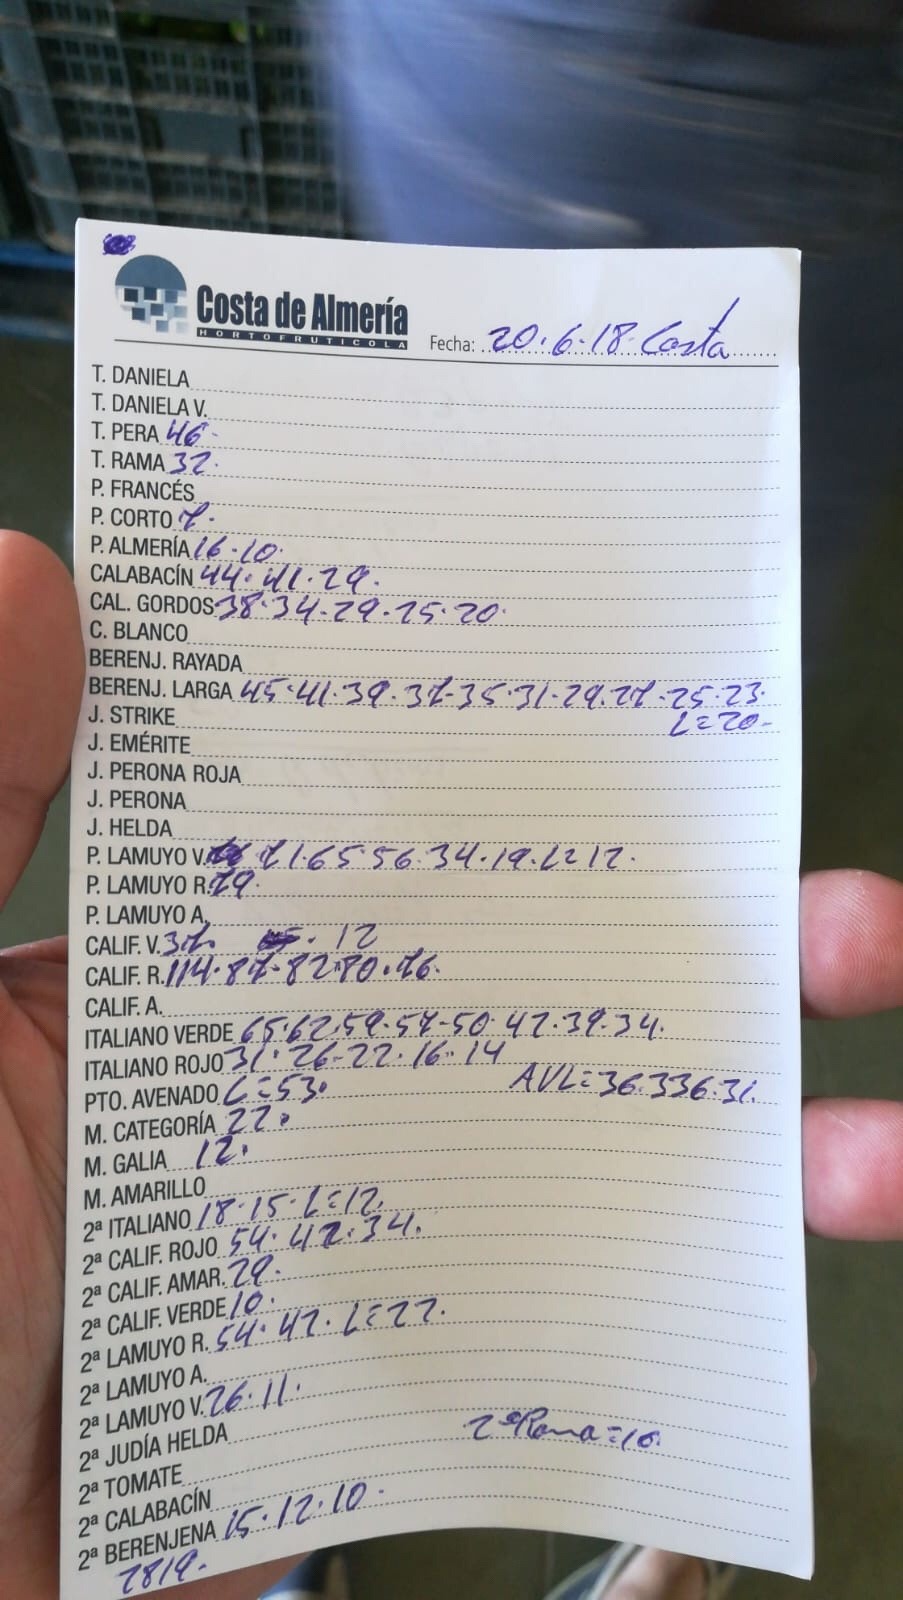 Costa de Almería
HORTOFRUTICOLA
Fecha: 20.6.18. Costa
T. DANIELA
T. DANIELA V.
T. PERA 46.
T. RAMA 32.
P. FRANCÉS
P. CORTO 7.
P. ALMERÍA 16.10.
CALABACÍN 44. 41.29.
CAL. GORDOS 38.34.29.25.20.
C. BLANCO
BERENJ. RAYADA
BERENJ. LARGA 45.41.39.37.35.31.29.27.25.23.
J. STRIKE L=20.
J. EMÉRITE
J. PERONA ROJA
J. PERONA
J. HELDA
P. LAMUYO V. 71.65.56.34.19.L=12.
P. LAMUYO R. 79.
P. LAMUYO A.
CALIF. V. 37. 12
CALIF. R. 114.87.82.80.76.
CALIF. A.
ITALIANO VERDE 65.62.59.57.50.42.39.34.
ITALIANO ROJO 31.26.22.16.14
PTO. AVENADO L=53. AVL=36.336.31.
M. CATEGORÍA 22.
M. GALIA 12.
M. AMARILLO
2ª ITALIANO 18.15.L=12.
2ª CALIF. ROJO 54.42.34.
2ª CALIF. AMAR. 29.
2ª CALIF. VERDE 10.
2ª LAMUYO R. 54.42.L=22.
2ª LAMUYO A.
2ª LAMUYO V. 26.11.
2ª JUDÍA HELDA 2ª Rama=10.
2ª TOMATE
2ª CALABACÍN
2ª BERENJENA 15.12.10.